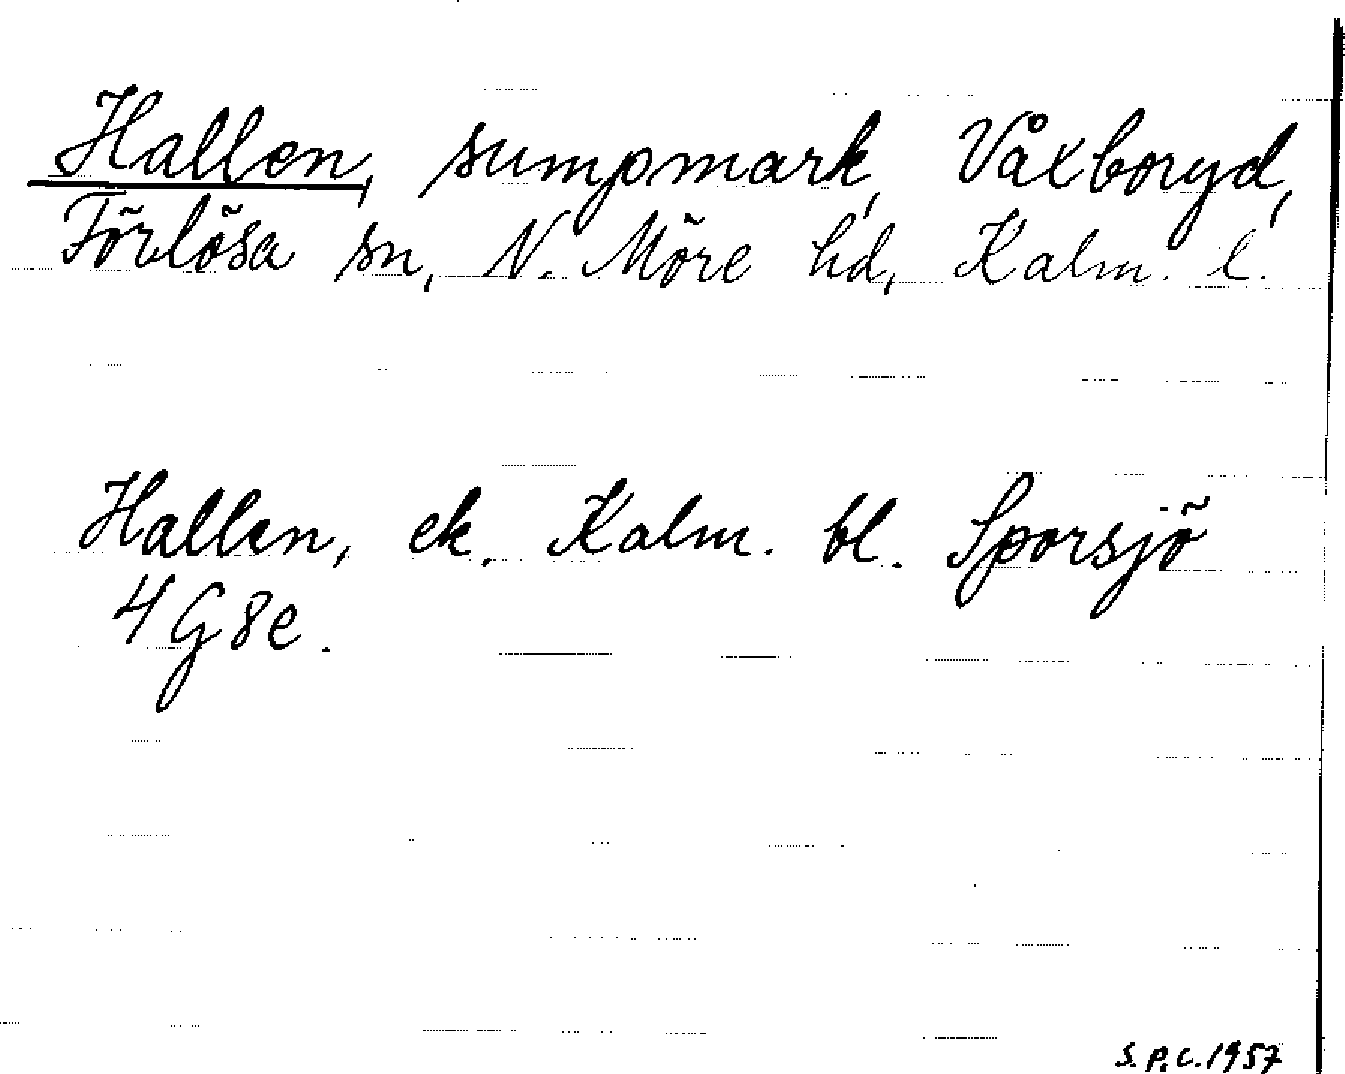 Hallen, sumpmark, Våxboryd,
Förlösa sn, N. Möre hd, Kalm. l.
Hallen, ek. Kalm. bl. Sporsjö
4 G 8 e.
S.P.C. 1957